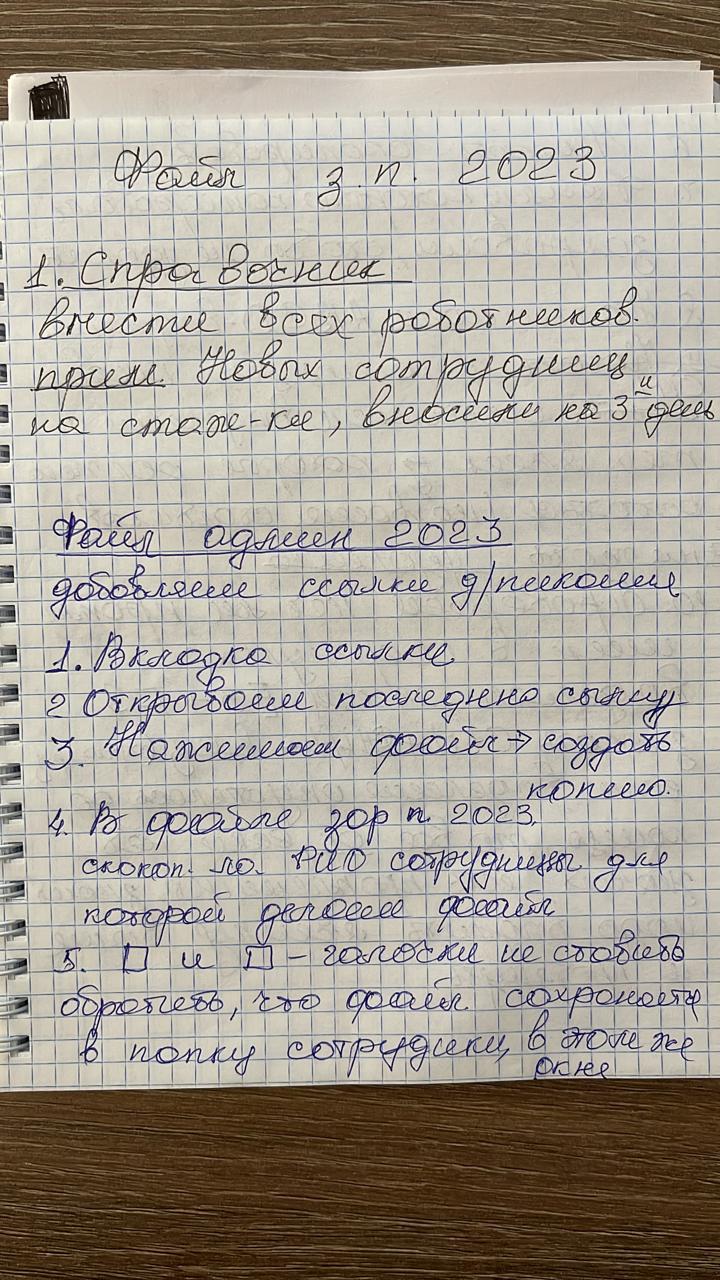 Файл з.п. 2023
1. Справочник
внести всех работников.
прим. Новых сотрудниц
на стаж-ки, вносим на 3й день
Файл админ 2023
добавляем ссылки д/
1. Вкладка ссылки
2 Открываем последнюю сылку
3. Нажимаем файл → создать
копию.
4. В файле зар п. 2023
скокоп. ФИО сотрудницы для
которой делаем файл
5. □ и □ – галочки не ставить
обратить, что файл сохраняетя
в папку сотрудики, в этом же
окне